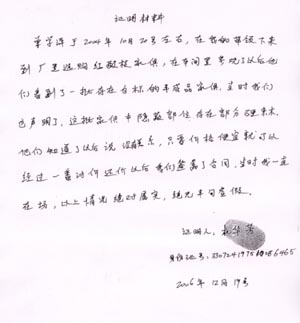 证明材料
于2004年10月20号左右，在 的带领下来
到厂里选购红酸枝家俱，在车间里参观了以后他
们看到了一批存在白标的半成品家俱，当时我们
也声明了，这批家俱中隐蔽部位存在部分 来木，
他们知道了以后说没关系，只要价格便宜就可以
经过一番讨价还价以后我们签属了合同，当时我一直
在场，以上情况绝对属实，绝无半句虚假。
证明人：
身份证号：
2006年12月19号